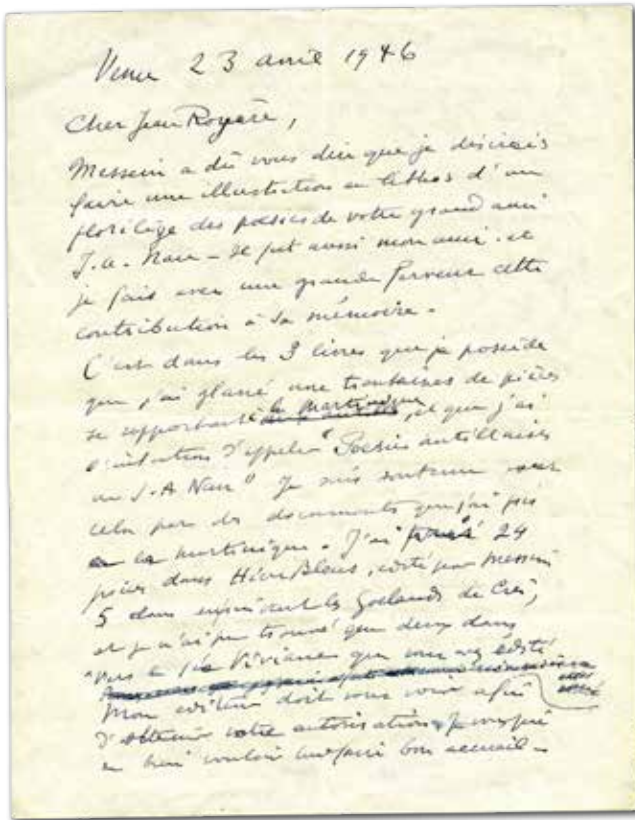 Vence 23 avril 1946
Cher Jean Royère,
Messein a dû vous dire que je désirais
faire une illustration en lithos d'un
florilège des poésies de votre grand ami
J.A. Nau - Il fut aussi mon ami. et
je fais avec une grande ferveur cette
contribution à sa mémoire.
C'est dans les 3 livres que je possède
que j'ai glané une trentaines de pièces
se rapportant la martinique, et que j'ai
l'intention d'appeler "Poésies antillaises
de J.A Nau" Je suis soutenu pour
cela par des documents que j'ai pris
à la martinique. J'ai trouvé 24
pièces dans Hiers Bleus, édité par Messein
5 dans les Goélands de Crès,
et je n'ai pu trouvé que deux dans
"Vers la Fée Viviane que vous avez édité
Mon éditeur doit vous voir afin
d'obtenir votre autorisation, je vous prie
de bien vouloir lui faire bon accueil -